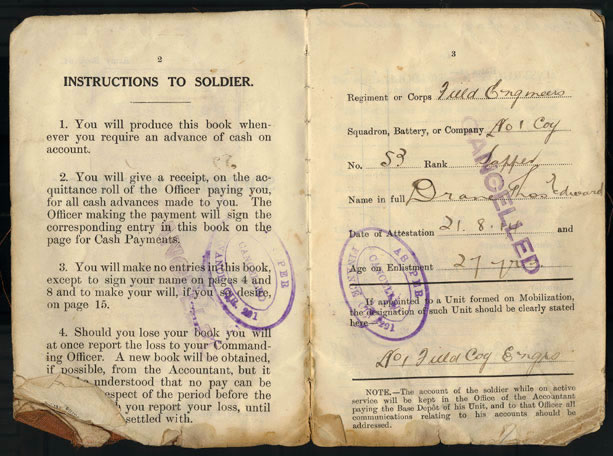 2
INSTRUCTIONS TO SOLDIER.
1. You will produce this book when-
ever you require an advance of cash on
account.
2. You will give a receipt, on the ac-
quittance roll of the Officer paying you,
for all cash advances made to you. The
Officer making the payment will sign the
corresponding entry in this book on the
page for Cash Payments.
3. You will make no entries in this book,
except to sign your name on pages 4 and
8 and to make your will, if you so desire,
on page 15.
4. Should you lose your book you will
at once report the loss to your Command-
ing Officer. A new book will be obtained,
if possible, from the Accountant, but it
understood that no pay can be
respect of the period before the
you report your loss, until
settled with.
3
Regiment or Corps Field Engineers
Squadron, Battery, or Company No 1 Coy
No. 53 Rank Sapper
Name in full Drane Thos Edward
Date of Attestation 21.8.14 and
Age on Enlistment 27 yrs
If appointed to a Unit formed on Mobilization,
the designation of such Unit should be clearly stated
here—
No 1 Field Coy Engrs
NOTE.—The account of the soldier while on active
service will be kept in the Office of the Accountant
paying the Base Depôt of his Unit, and to that Officer all
communications relating to his accounts should be
addressed.
CANCELLED
AS PER